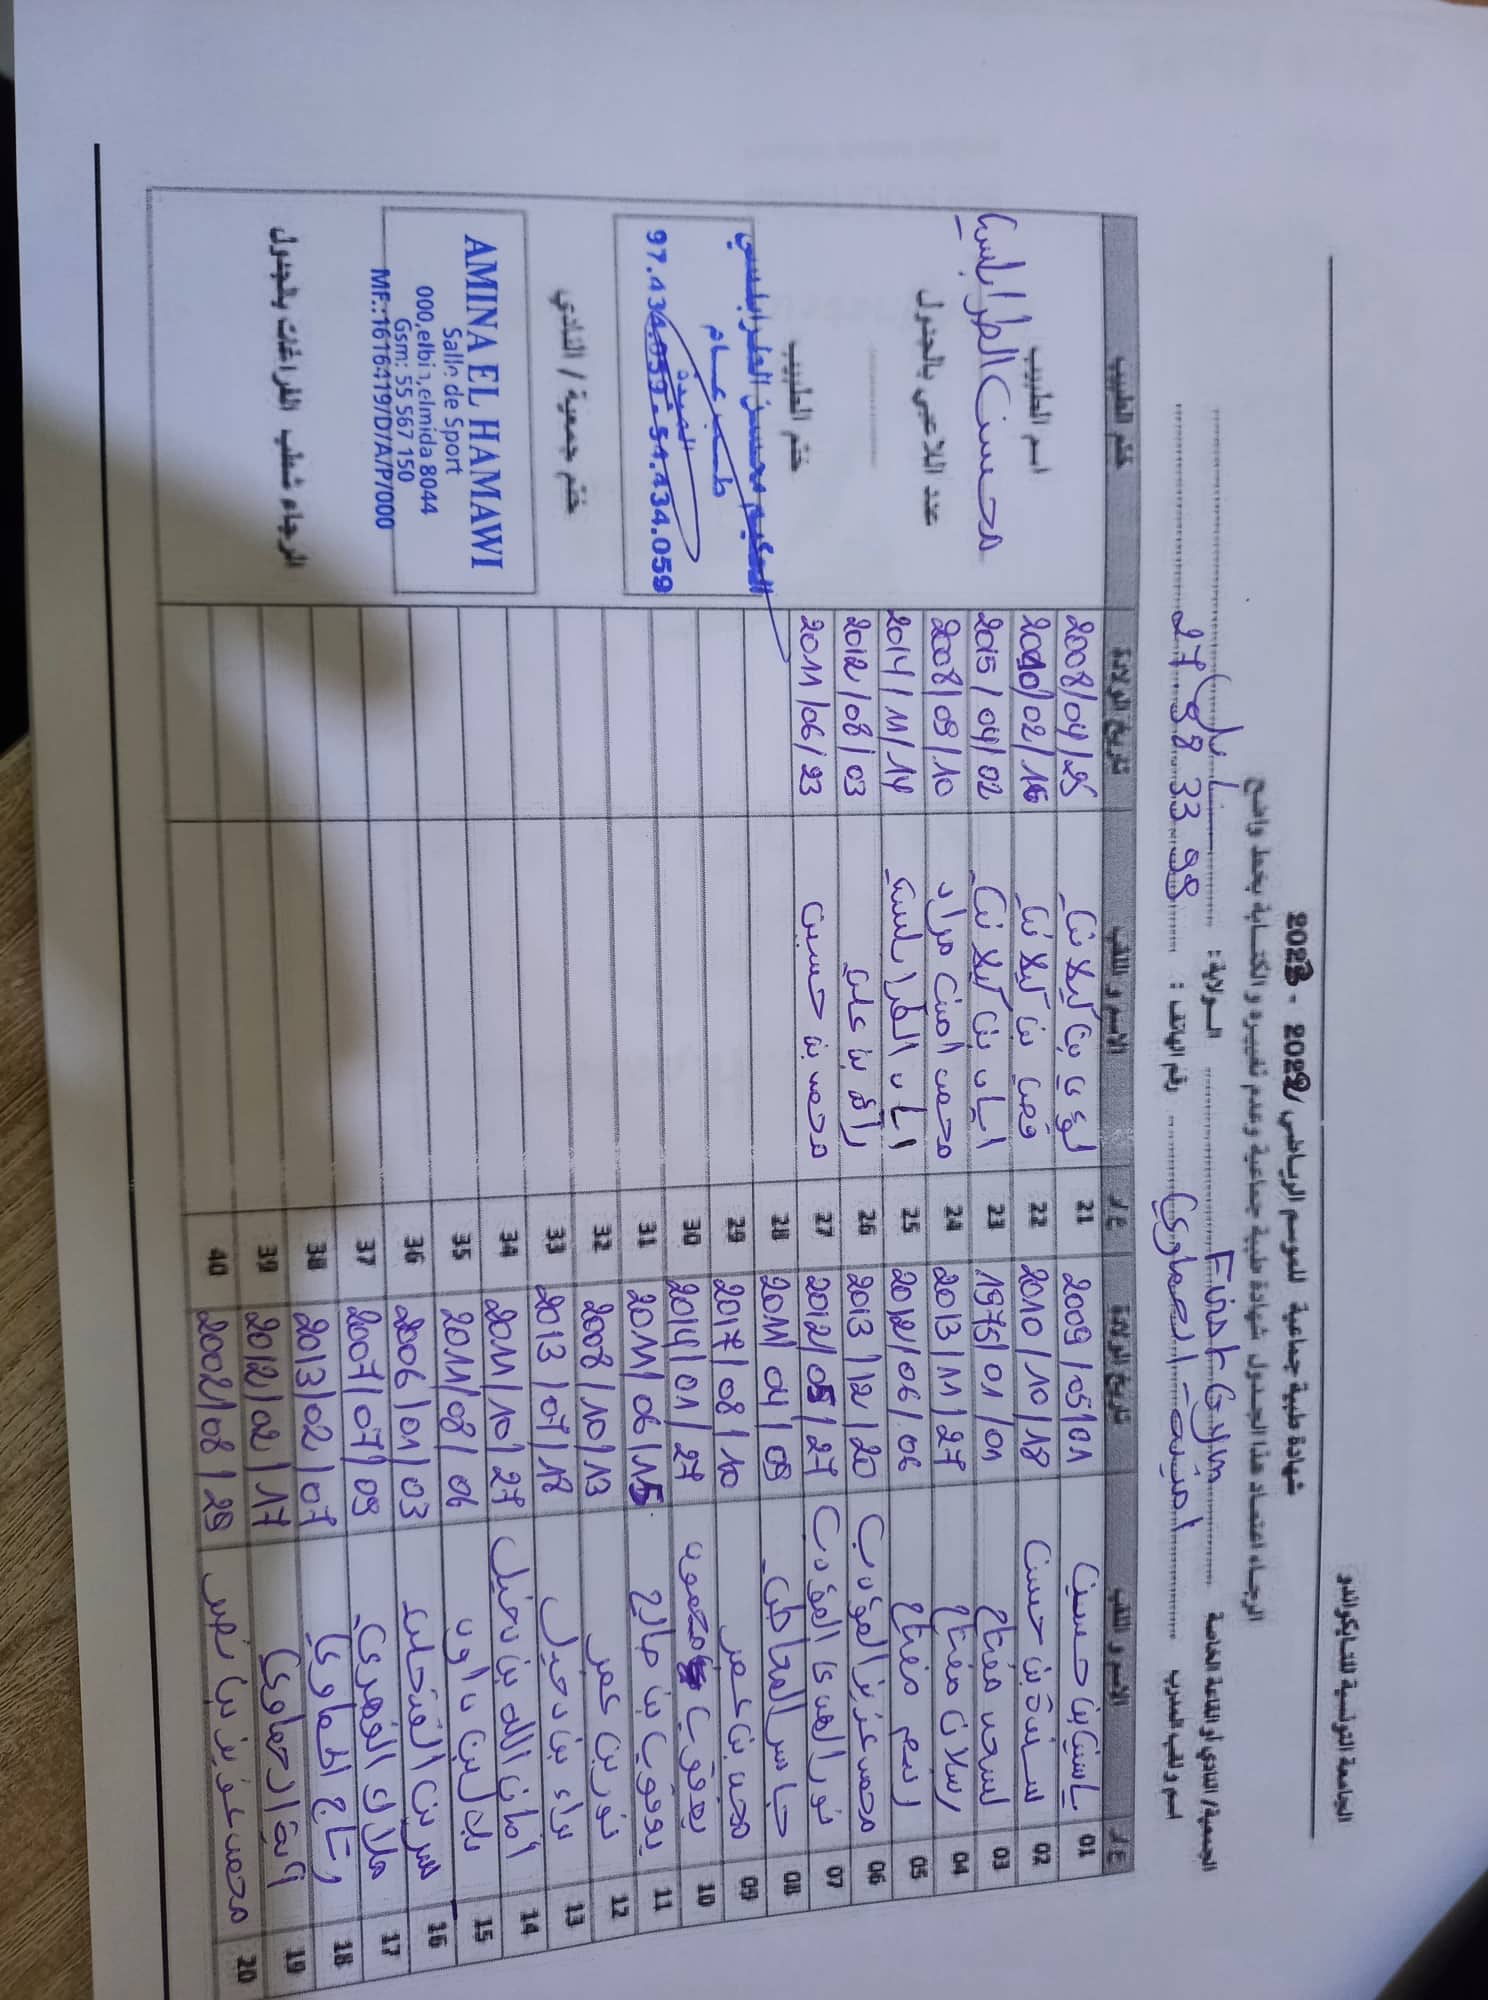 الجامعة التونسية للتايكواندو
شهادة طبية جماعية للموسم الرياضي 2022 - 2023
الرجاء اعتماد هذا الجدول شهادة طبية جماعية وعدم تغييره و الكتابة بخط واضح
الجمعية/ النادي أو القاعة الخاصة First Gym الولاية: نابل
اسم و لقب المدرب امينة الحماوي رقم الهاتف: 27 98 33 99
ع/د الاسم و اللقب تاريخ الولادة ع/د الاسم و اللقب تاريخ الولادة ختم الطبيب
01 ياسين بن حسين 2009/05/01 21 لؤي بن كيلاني 2008/04/25
02 سندة بن حسن 2010/10/18 22 قصي بن كيلاني 02/16
03 مفتاح 1975/01/01 23 اياد بن كيلاني 2015/04/02
04 رسلان مفتاح 2013/11/27 24 محمد امين مراد 2008/09/10
05 مفتاح 2012/06/06 25 اياد الطرابلسي 2014/11/14
06 محمد عزيز المؤدب 2013/12/20 26 بن علي 2012/08/03
07 نور الهدى المؤدب 2012/05/27 27 محمد بن حسين 2011/06/23
08 جاسر 2011/04/09 28
09 محمد بن عمر 2017/08/10 29
10 يعقوب 2014/01/27 30
11 يعقوب بن صالح 2011/06/15 31
12 نورين عمر 2008/10/13 32
13 براء بن دخيل 2013/07/18 33
14 امان الله بن دخيل 2011/10/27 34
15 بن داود 2011/08/06 35
16 2006/01/03 36
17 ملاك 2007/07/09 37
18 رتاج الحماوي 2013/02/07 38
19 آية الحماوي 2012/02/17 39
20 محمد عزيز بن نصر 2002/08/29 40
اسم الطبيب
محسن الطرابلسي
عدد اللاعبي بالجدول
ختم الطبيب
الحكيم محسن الطرابلسي
طبيب عام
الميدة
97.434.059 - 54.434.059
ختم جمعية / النادي
AMINA EL HAMAWI
Salle de Sport
000,elbi,elmida 8044
Gsm: 55 567 150
MF.:1616419/D/A/P/000
الرجاء شطب الفراغات بالجدول